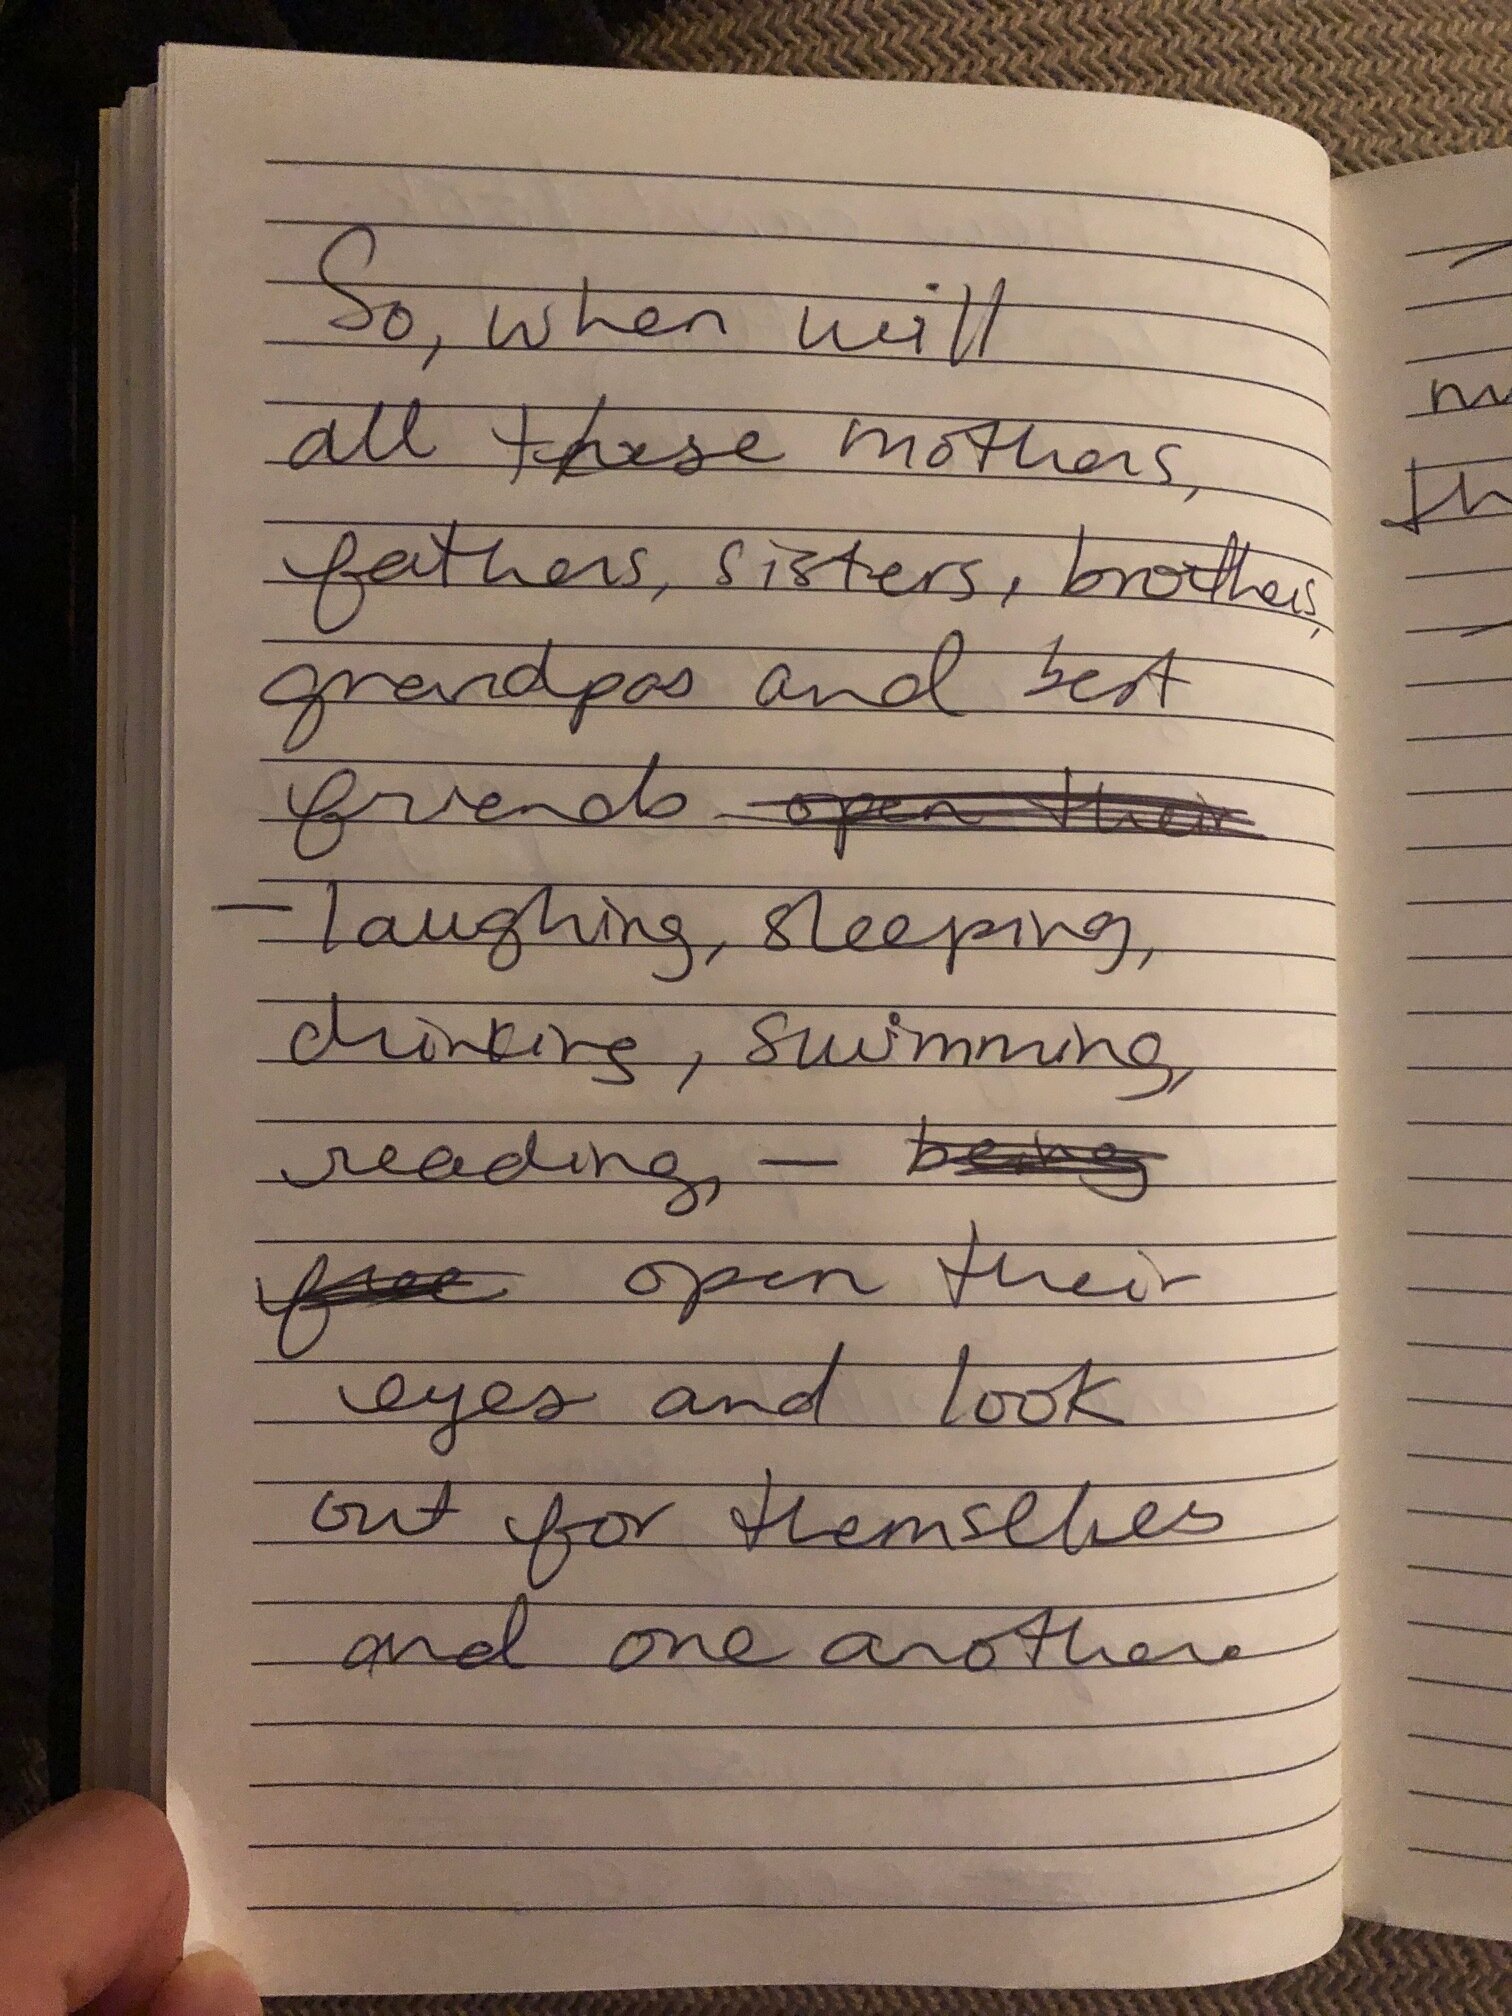 So, when will
all these mothers,
fathers, sisters, brothers,
grandpas and best
friends open their
– laughing, sleeping,
drinking, swimming,
reading, – being
free open their
eyes and look
out for themselves
and one another